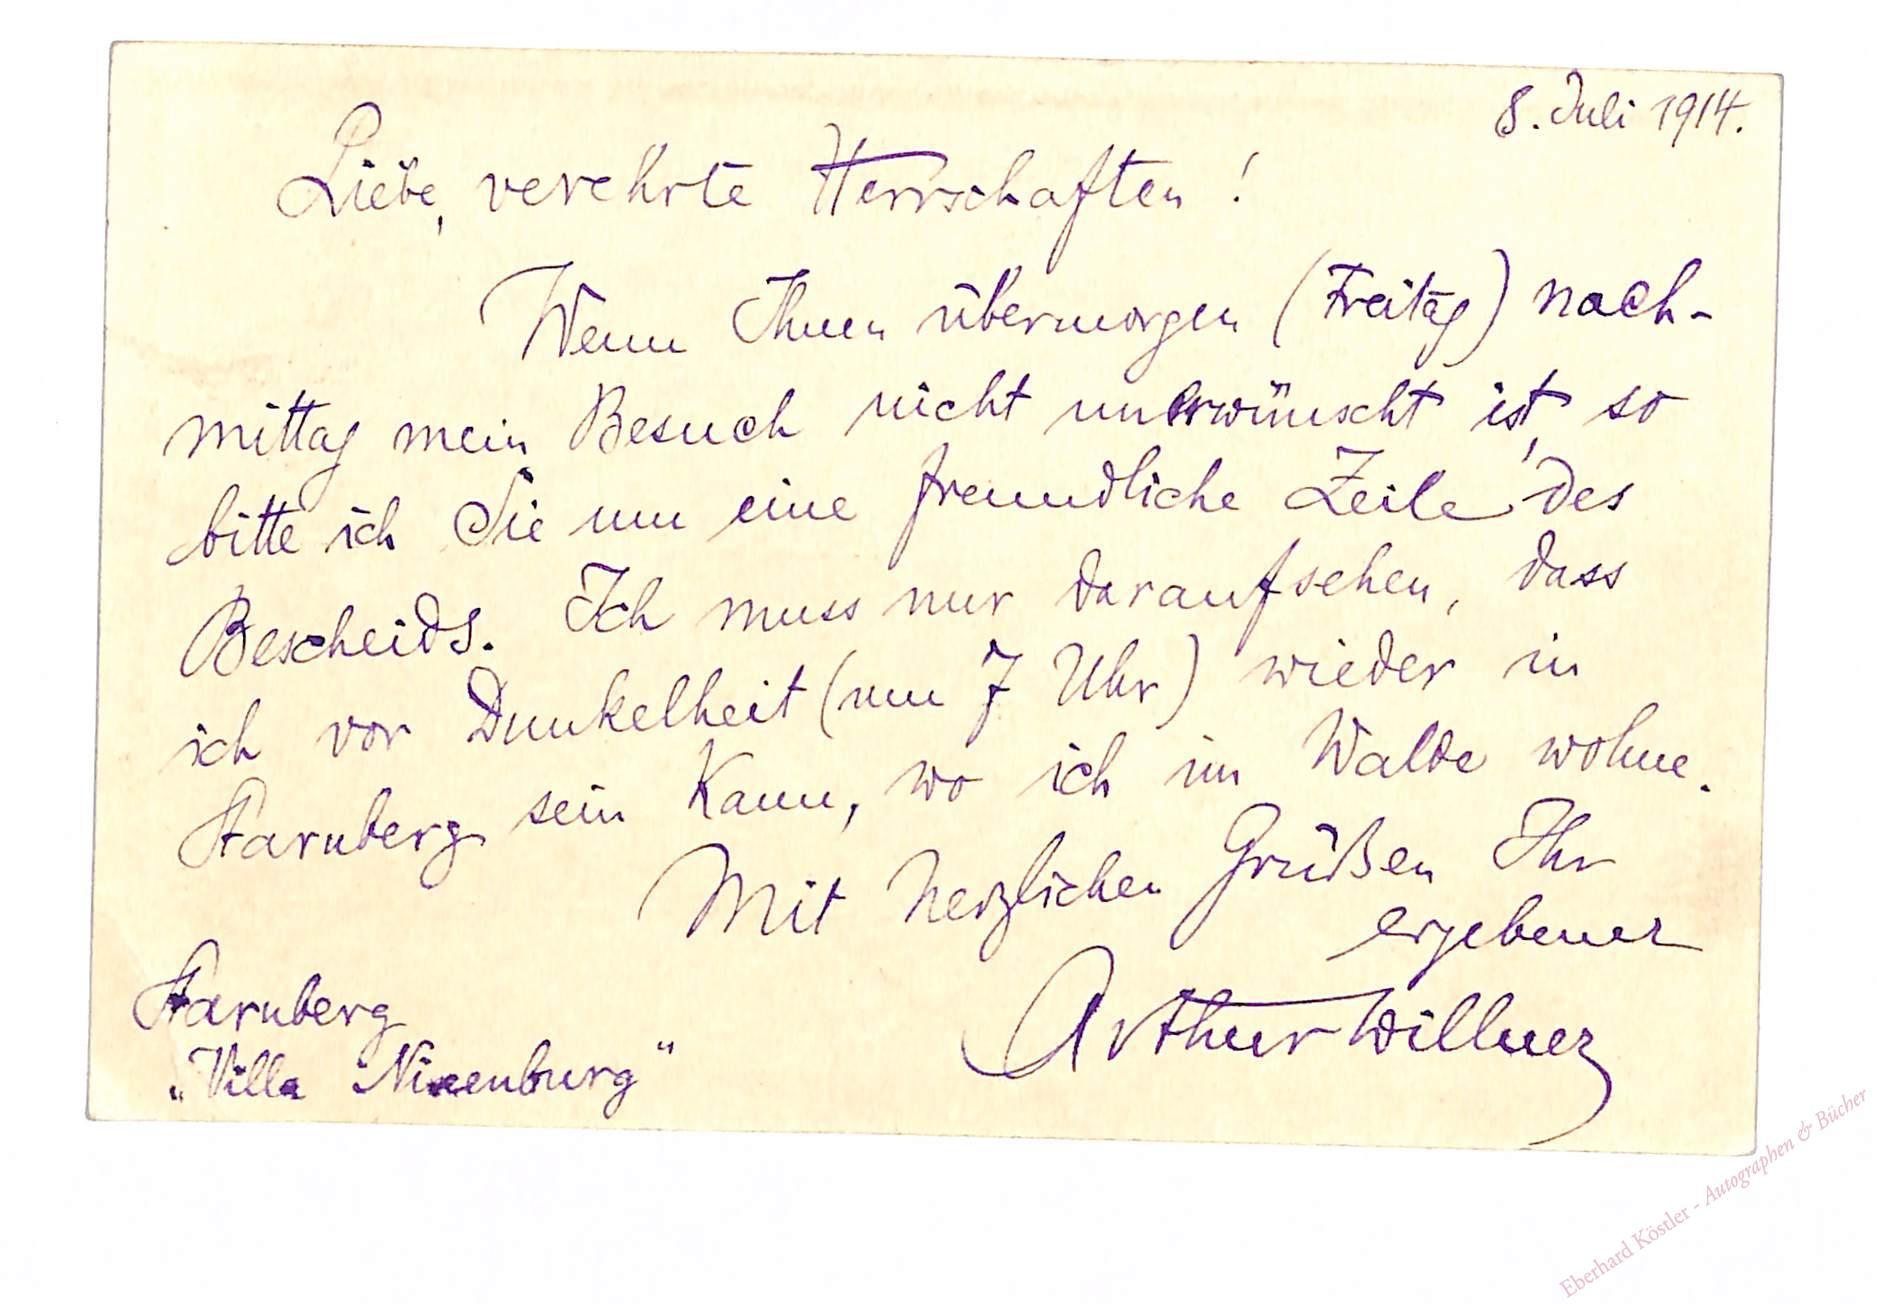 8. Juli 1914.
Liebe, verehrte Herrschaften!
Wenn Ihnen übermorgen (Freitag) nach-
mittag mein Besuch nicht unerwünscht ist, so
bitte ich Sie um eine freundliche Zeile des
Bescheids. Ich muss nur darauf sehen, dass
ich vor Dunkelheit (um 7 Uhr) wieder in
Starnberg sein kann, wo ich im Walde wohne.
Mit herzlichen Grüßen Ihr
ergebener
Arthur Willner
Starnberg
„Villa Nixenburg"
Eberhard Köstler - Autographen & Bücher